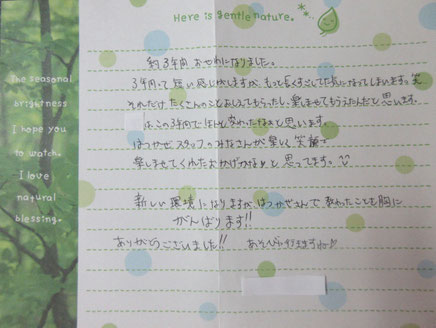 Here is gentle nature.
The seasonal
brightness
I hope you
to watch.
I love
natural
blessing.
約3年間 おせわになりました。
3年間って短い感じがしますが、もっと長くすごしてた気になってしまいます。笑
それだけたくさんのことおしえてもらったし、楽しませてもらえたんだと思います。
は、この3年間でほんと変わったなぁと思います。
はつかぜスタッフのみなさんが楽しく笑顔で
楽しませてくれたおかげかなぁと思ってます。
新しい環境になりますが、はつかぜさんで教わったことも胸に
がんばります!!
ありがとうございました!! あそび行きますね♪